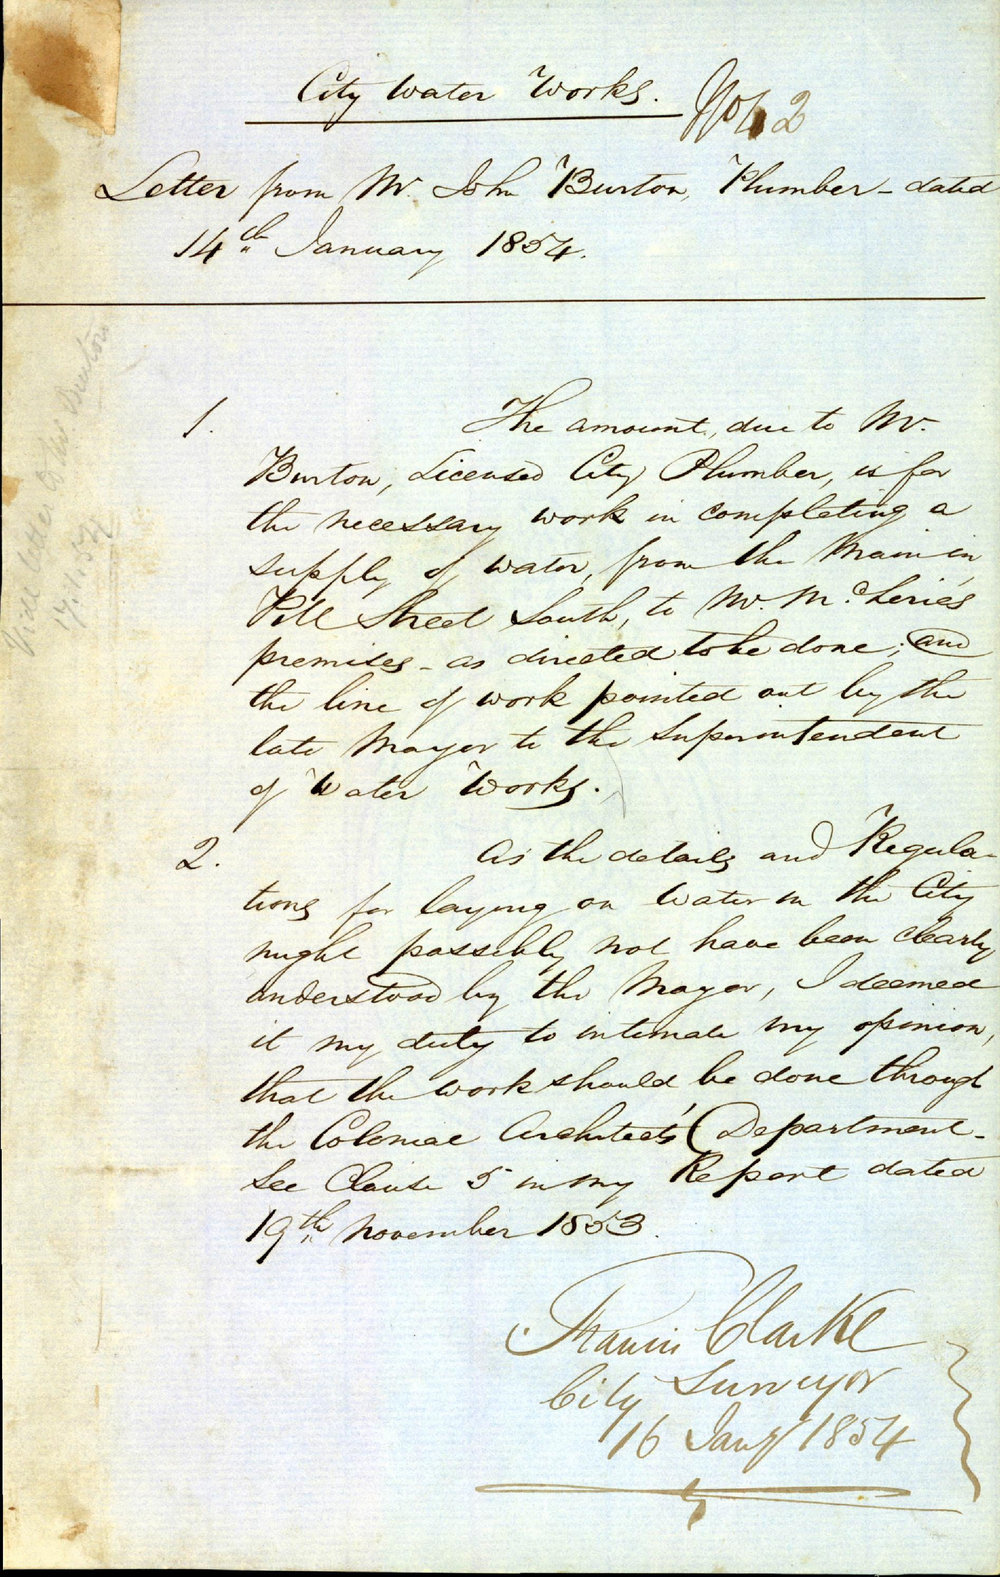 City Water Works.
No 2
Letter from Mr. John Burton, Plumber - dated
14th January 1854.
1. The amount, due to Mr.
Burton, Licensed City Plumber, is for
the necessary work in completing a
supply of water, from the Main in
Pitt Street South, to Mr. McLerie's
premises - as directed to be done; and
the line of work pointed out by the
late Mayor to the Superintendent
of Water Works.
2. As the details and Regula-
tions for laying on Water in the City
might possibly not have been clearly
understood by the Mayor, I deemed
it my duty to intimate my opinion,
that the work should be done through
the Colonial Architect's Department -
See Clause 5 in my Report dated
19th November 1853.
Francis Clarke
City Surveyor
16 Jany 1854
Vide letter to Mr Burton
17.1.54